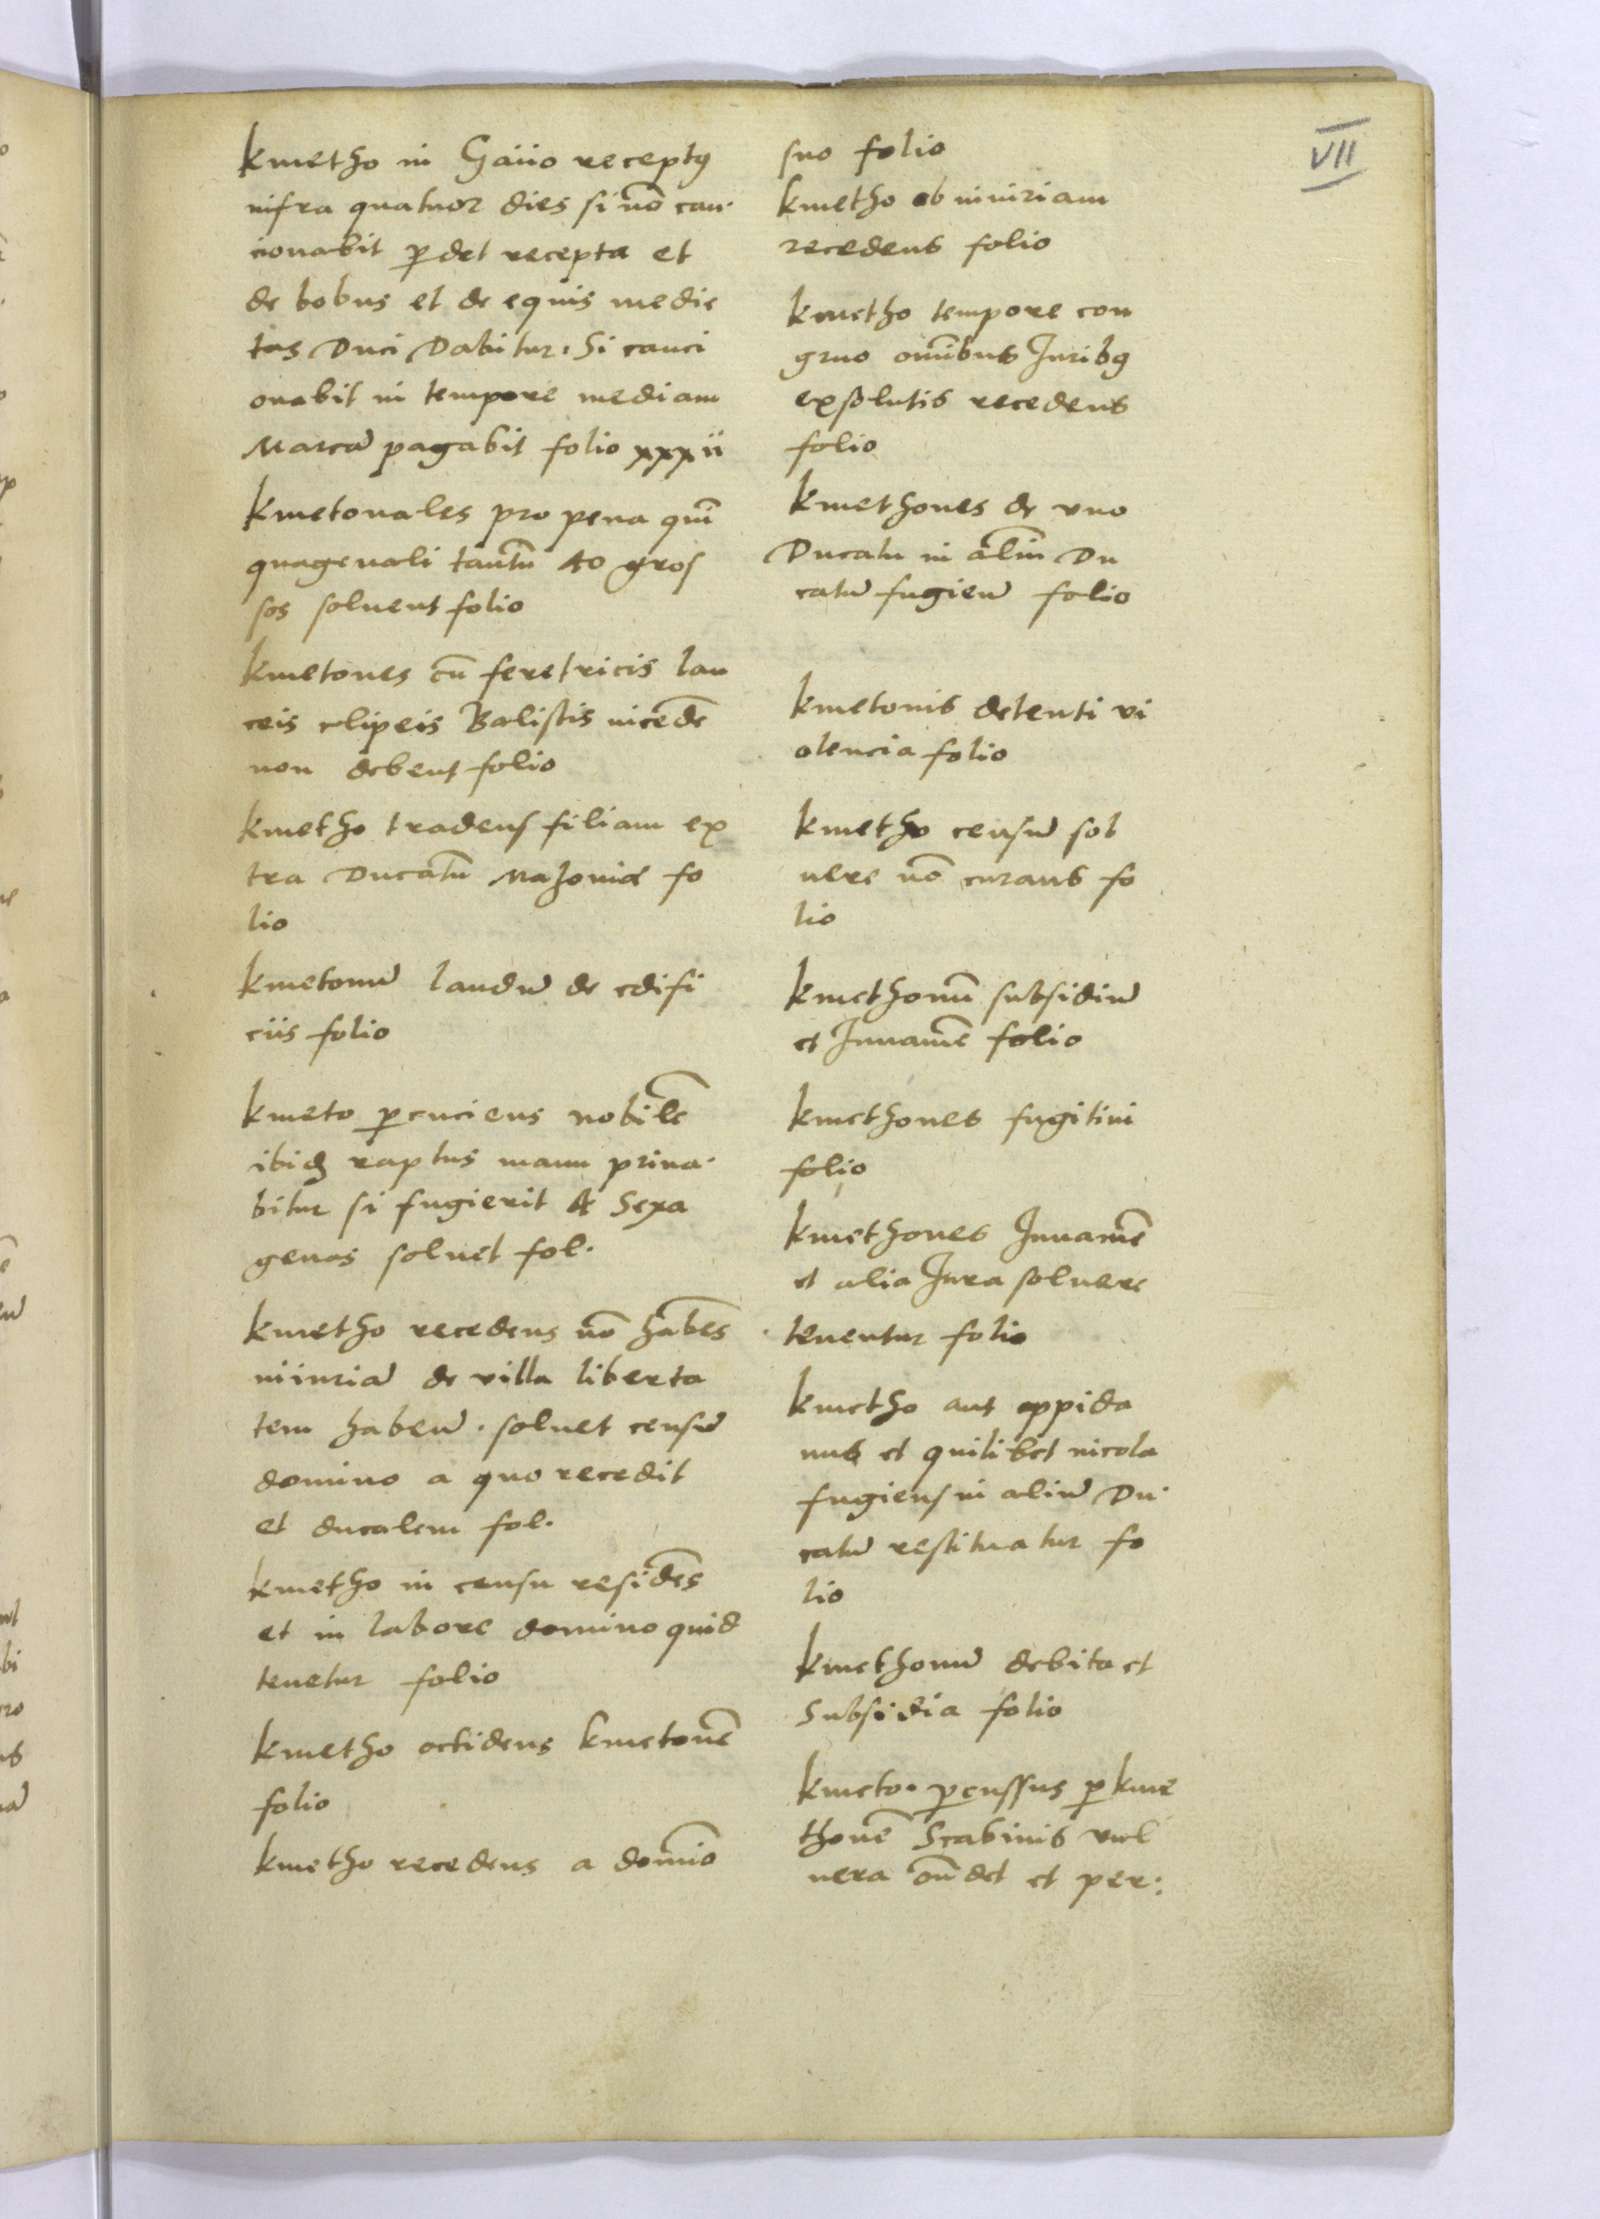 kmetho in Gaiio receptꝯ
infra quatuor dies si nō cau·
cionabit ꝑdet recepta et
de bobus et de equis medie
tas Duci Dabitur. Si cauci
onabit in tempore mediam
Marcā pagabit folio xxxii
kmetonales pro pena quī
quagenali tantū 40 gros
sos soluent folio
kmetones cū feretricis lan
ceis clipeis Balistis incedē
non debent folio
kmetho tradens filiam ex
tra Ducatū Mazouie fo
lio
kmetonū laudū de edifi
ciis folio
kmeto ꝑcuciens nobilē
ibidē raptus manu priua·
bitur si fugierit 4 Sexa
genas soluet fol.
kmetho recedens nō habēs
iniuriā de villa liberta
tem habeñ. soluet censū
domino a quo recedit
et ducalem fol.
kmetho in censu residēs
et in labore domino quid
tenetur folio
kmetho occidens kmetonē
folio
kmetho recedens a domīo
suo folio
kmetho ob iniuriam
recedens folio
kmetho tempore con
gruo omībus Juribꝯ
exsolutis recedens
folio
kmethones de vno
Ducatu in aliū Du
catū fugieñ folio
kmetonis detenti vi
olencia folio
kmetho censū sol
uere nō curans fo
lio
kmethonū subsidiū
et Juuamē folio
kmethones fugitiui
folio
kmethones Juuamē
et alia Jura soluere
tenentur folio
kmetho aut oppida
nus et quilibet incola
fugiens in aliū Du·
catū restituatur fo
lio
kmethonū debita et
Subsidia folio
kmeto. ꝑcussus ꝑ kme
thonē Scabinis vul
nera oñdet et per:
VII